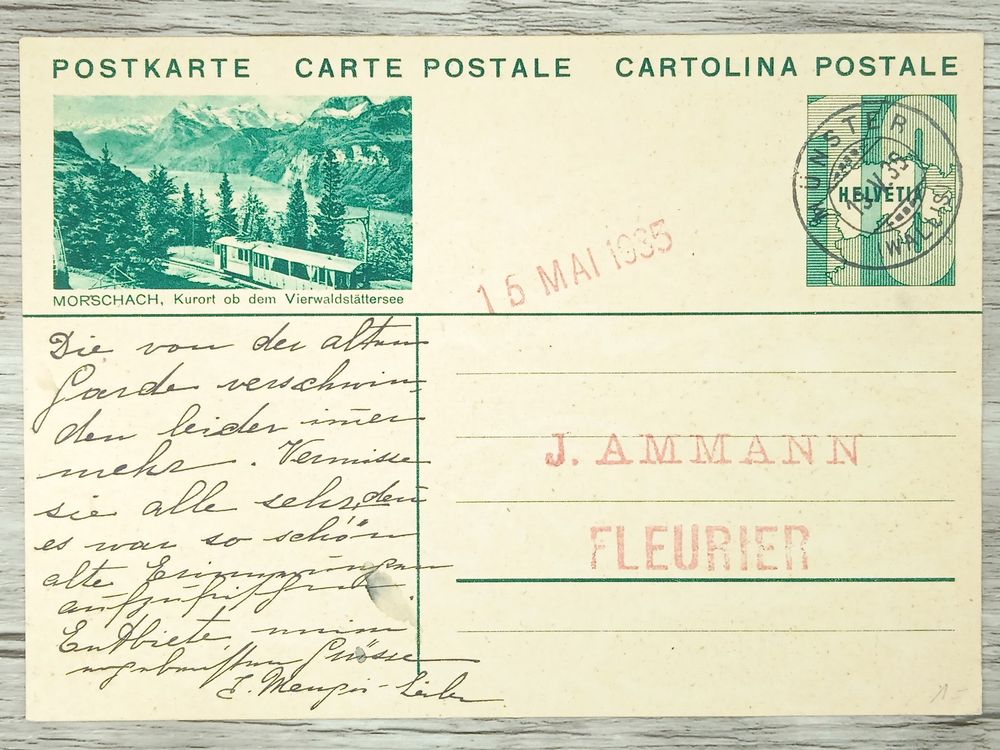 POSTKARTE CARTE POSTALE CARTOLINA POSTALE
MORSCHACH, Kurort ob dem Vierwaldstättersee
MÜNSTER
HELVETIA
(WALLIS)
15 MAI 1935
Die von der alten
Garde verschwin
den leider im̅er
mehr. Vermisse
sie alle sehr, den̅
es war so schön
alte Erinnerungen
aufzufrischen.
Entbiete meine
ergebensten Grüsse
J. AMMANN
FLEURIER